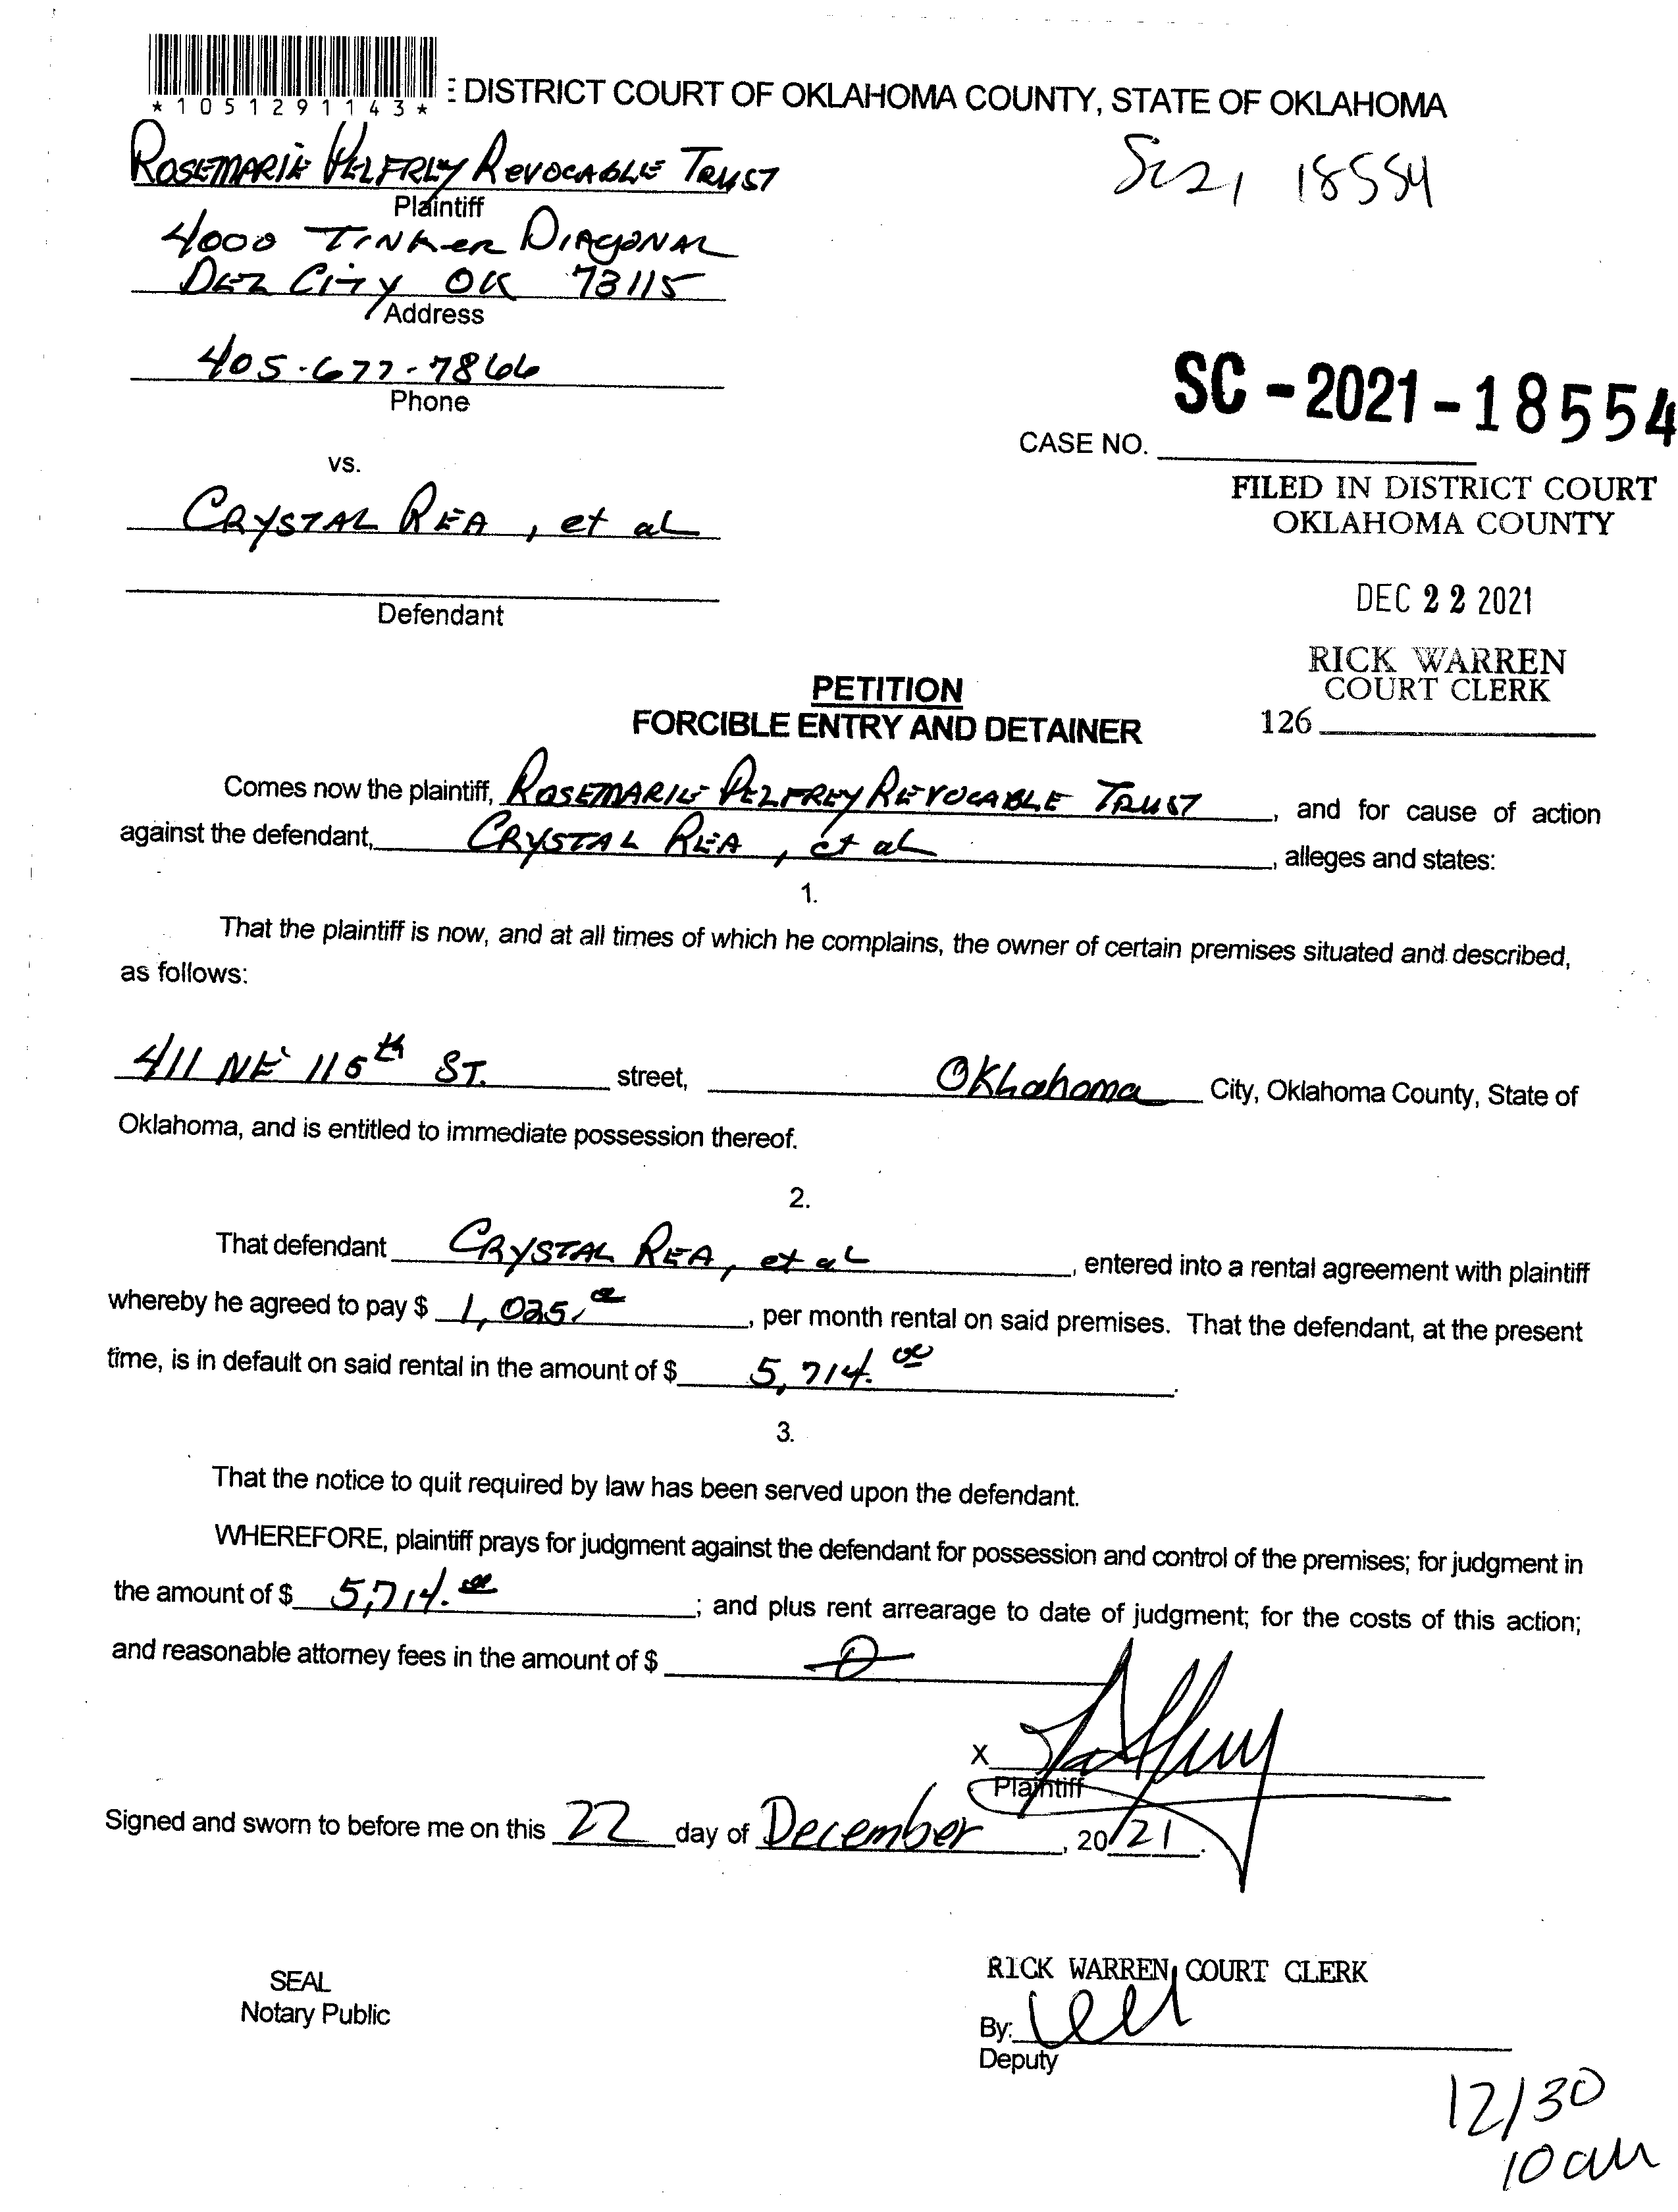 *1051291143*
E DISTRICT COURT OF OKLAHOMA COUNTY, STATE OF OKLAHOMA
ROSEMARIE PELFREY REVOCABLE TRUST
Plaintiff
4000 TINKER DIAGONAL
DEL CITY OK 73115
Address
405-677-7866
Phone
18554
SC-2021-18554
CASE NO.
vs.
CRYSTAL REA, et al
Defendant
FILED IN DISTRICT COURT
OKLAHOMA COUNTY
DEC 22 2021
RICK WARREN
COURT CLERK
126
PETITION
FORCIBLE ENTRY AND DETAINER
Comes now the plaintiff, ROSEMARIE PELFREY REVOCABLE TRUST, and for cause of action
against the defendant, CRYSTAL REA, et al, alleges and states:
1.
That the plaintiff is now, and at all times of which he complains, the owner of certain premises situated and described,
as follows:
411 NE 115th ST. street, Oklahoma City, Oklahoma County, State of
Oklahoma, and is entitled to immediate possession thereof.
2.
That defendant CRYSTAL REA, et al, entered into a rental agreement with plaintiff
whereby he agreed to pay $ 1,025.00, per month rental on said premises. That the defendant, at the present
time, is in default on said rental in the amount of $ 5,714.00.
3.
That the notice to quit required by law has been served upon the defendant.
WHEREFORE, plaintiff prays for judgment against the defendant for possession and control of the premises; for judgment in
the amount of $ 5,714.00; and plus rent arrearage to date of judgment; for the costs of this action;
and reasonable attorney fees in the amount of $ 0
X
Plaintiff
Signed and sworn to before me on this 22 day of December, 2021.
SEAL
Notary Public
RICK WARREN, COURT CLERK
By:
Deputy
12/30
10 am